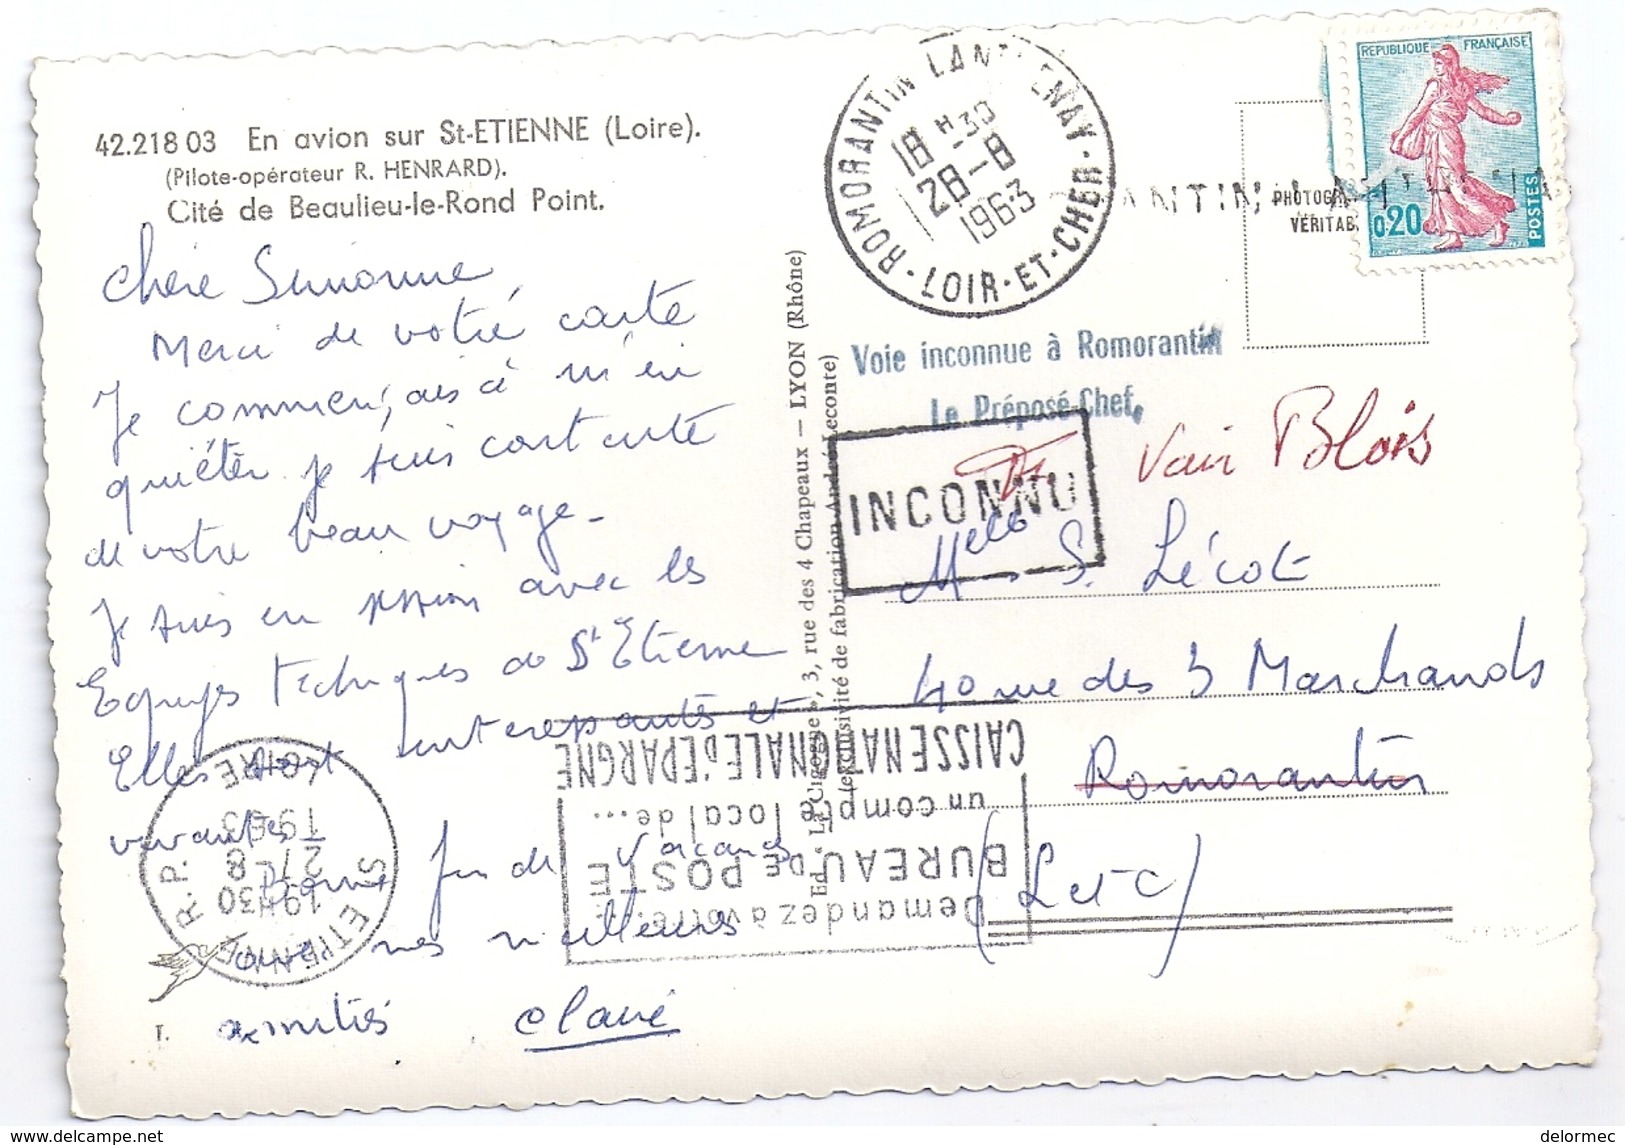 42.218 03 En avion sur St-ETIENNE (Loire).
(Pilote-opérateur R. HENRARD).
Cité de Beaulieu-le-Rond Point.
Chère Simonne
Merci de votre carte
Je commençais à m'in
quiéter je suis contente
de votre beau voyage -
Je suis en session avec les
Equipes Techniques de St Etienne
Elles sont interessantes et
vivantes
Bonne fin de vacances
avec mes meilleures
amitiés Claire
I.
Ed. « La Cigogne », 3, rue des 4 Chapeaux — LYON (Rhône)
(exclusivité de fabrication André Leconte)
ROMORANTIN LANTHENAY · LOIR-ET-CHER ·
18 H 30
28-8
1963
REPUBLIQUE FRANÇAISE
0,20
POSTES
PHOTOG
VÉRITAB
Voie inconnue à Romorantin
Le Préposé-Chef,
INCONNU
Voir Blois
Melle S. Lécot
40 rue des 3 Marchands
Romorantin
(L et C)
ST ETIENNE R.P.
19H30
27-8
1963
LOIRE
Demandez à votre...
BUREAU DE POSTE
un compte local de...
CAISSE NATIONALE D'EPARGNE
delormec